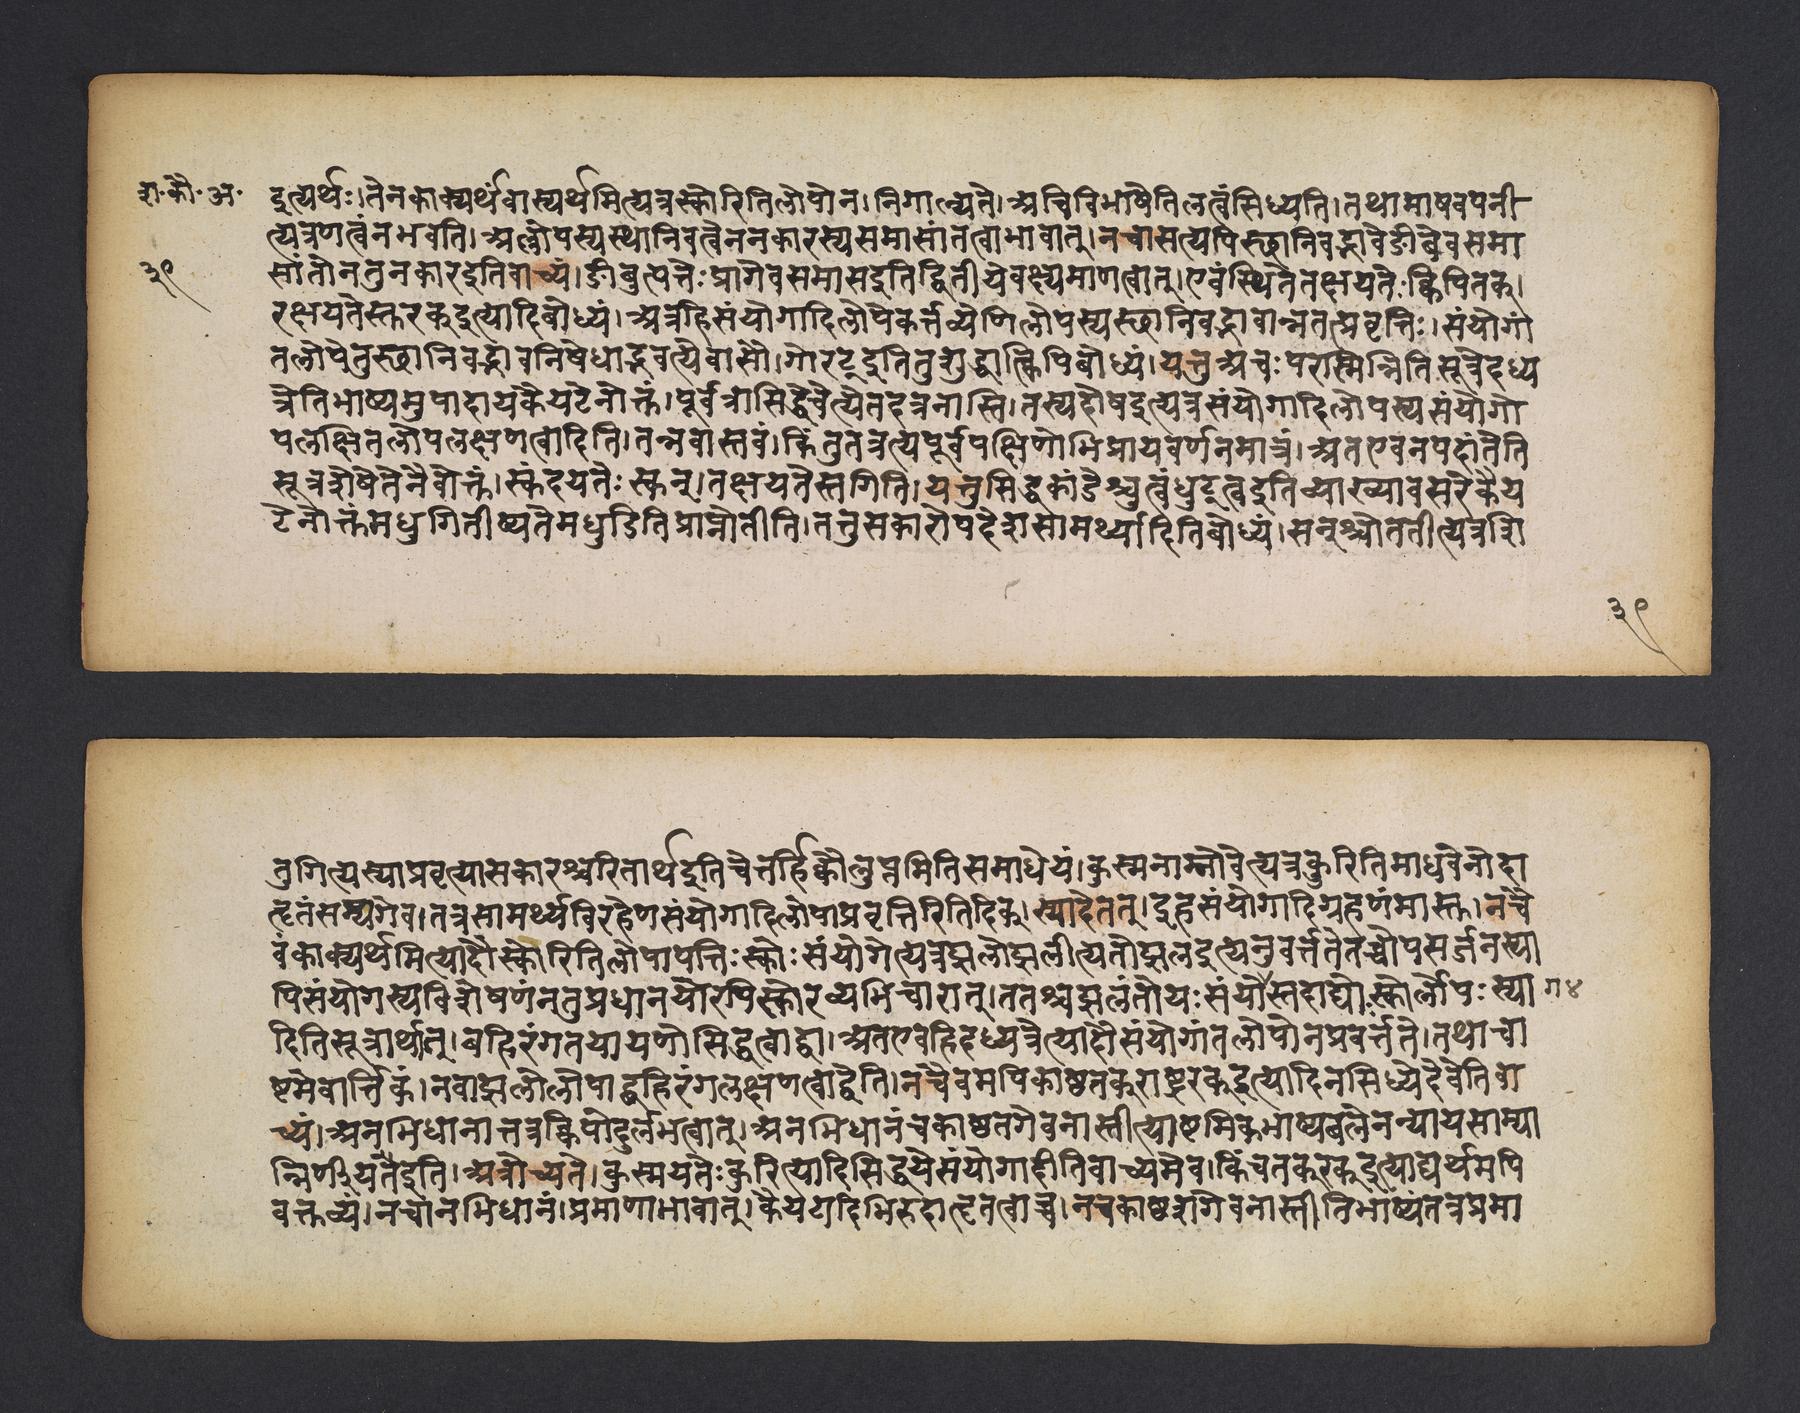 श॰ कौ॰ अ॰
३९
इत्यर्थः।तेनकाक्यर्थंवास्यर्थमित्यत्रस्कोरितिलोपोन।निगाल्यते।अचिविभाषेतिलत्वंसिध्यति।तथामाषवपनी
त्यत्रणत्वंनभवति।अल्लोपस्यस्थानिवत्वेननकारस्यसमासांतत्वाभावात्।नचासत्यपिस्छानिवद्भावेङीबेवसमा
सांतोनतुनकारइतिवाच्यं।ङीबुत्पत्तेःप्रागेवसमासइतिद्वितीयेवक्ष्यमाणत्वात्।एवंस्थितेतक्षयतेःक्विपितक्।
रक्षयतेस्तरक्इत्यादिबोध्यं।अत्रहिसंयोगादिलोपेकर्त्तव्येणिलोपस्यस्छानिवद्भावान्नतत्प्रवृत्तिः।संयोगां
तलोपेतुस्छानिवद्भावनिषेधाद्भवत्येवासौ।गोरट्इतितुशुद्धात्क्विपिबोध्यं।यत्तुअचःपरास्मिन्नितिसूत्रेदध्य
त्रेतिभाष्यमुपादायकैयटेनोक्तं।पूर्वत्रासिद्धेचेत्येतदत्रनास्ति।तस्यदोषइत्यत्रसंयोगादिलोपस्यसंयोगो
पलक्षितलोपलक्षणत्वादिति।तन्नवास्तवं।किंतुतत्रत्यपूर्वपक्षिणोभिप्रायवर्णनमात्रं।अतएवनपदांतेति
सूत्रशेषेतेनैवोक्तं।स्कंदयतेःस्कन्।तक्षयतेस्तगिति।यत्तुसिद्धकांडेश्चुत्वंधुट्त्वइतिव्याख्यावसरेकैय
टेनोक्तंमधुगितीष्यतेमधुडितिप्राप्नोतीति।तत्तुसकारोपदेशसामर्थ्यादितिबोध्यं।सन्श्च्योततीत्यत्रशि
३९
तुगित्यस्याप्रवृत्यासकारश्चरितार्थइतिचेत्तर्हिक्वौलुप्तमितिसमाधेयं।कुस्मनाम्नोवेत्यत्रकुरितिमाधवेनोदा
त्दृतंसम्यगेव।तत्रसामर्थ्यविरहेणसंयोगादिलोपाप्रवृत्तिरितिदिक्।स्यादेतत्।इहसंयोगादिग्रहणंमास्तु।नचै
वंकाक्यर्थमित्यादौस्कोरितिलोपापत्तिःस्कोःसंयोगेत्यत्रझलोझलीत्यतोझलइत्यनुवर्त्ततेतच्चोपसर्जनस्या
पिसंयोगस्यविशेषणंनतुप्रधानयोरपिस्कोरव्यभिचारात्।ततश्चझलंतोयःसंयोस्तदाद्योःस्कोर्लोपःस्या ग४
दितिसूत्रार्थात्।बहिरंगतयायणोसिद्धत्वाद्वा।अतएवहिदध्यत्रेत्यादौसंयोगांतलोपोनप्रवर्त्तते।तथाचा
ष्टमेवार्त्तिकं।नवाझलोलोपाद्बहिरंगलक्षणत्वाद्वेति।नचैवमपिकाष्ठतक्राष्ट्ररक्इत्यादिनसिध्येदेवेतिवा
च्यं।अनभिधानात्तत्रक्विपोदुर्लभत्वात्।अनभिधानंचकाष्ठतगेवनास्तीत्याष्टमिकभाष्यबलेनन्यायसाम्या
न्निर्णीयतेइति।अत्रोच्यते।कुस्मयतेःकुरित्यादिसिद्धयेसंयोगादीतिवाच्यमेव।किंचतक्रक्इत्याद्यर्थमपि
वक्तव्यं।नचानभिधानं।प्रमाणाभावात्।कैयटादिभिरुदात्दृतत्वाच्च।नचकाष्ठशगेवनास्तीतिभाष्यंतत्रप्रमा